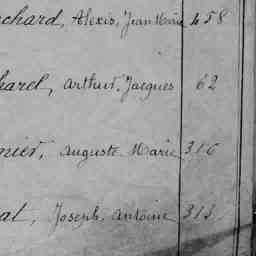 chard, Alexis, Jean Marie 458
harel, Arthur, Jacques 62
nier, Auguste Marie 316
al, Joseph, Antoine 313